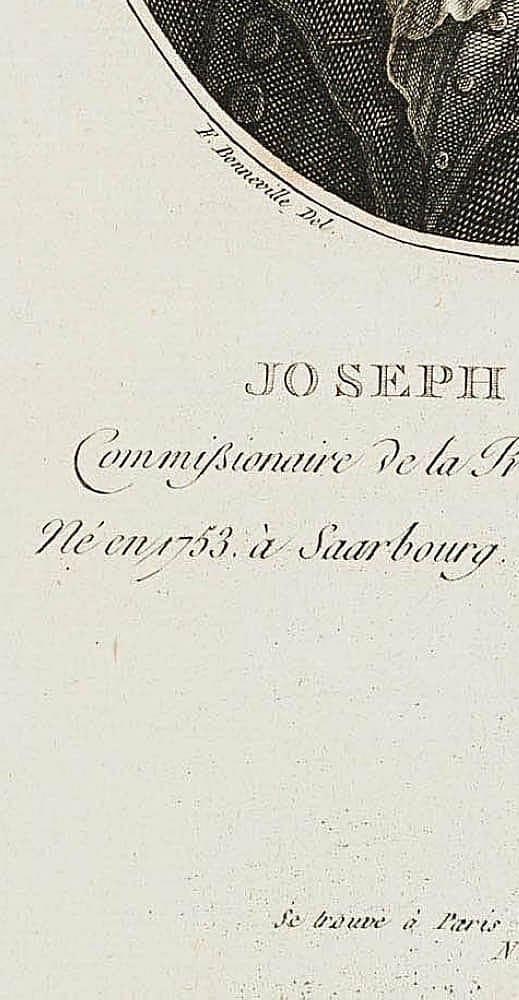 F. Bonneville Del.
JOSEPH
Commißionaire de la
Né en 1753. à Saarbourg.
Se trouve à Paris
N